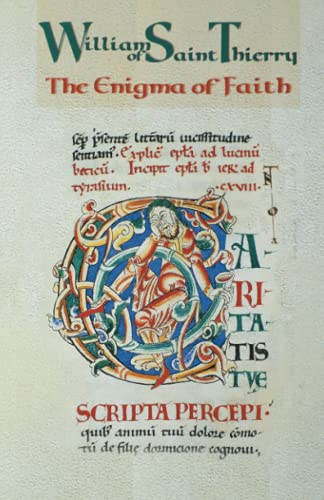 William of Saint Thierry
The Enigma of Faith
sep p̄sente littarū uicissitudine
sentiam. Explic̄ epl̄a ad lucinū
beticū. Incipit epl̄a b̄ ier̄ ad
tyrasium. .cxviii.
C
A-
RI-
TA-
TIS
TVE
SCRIPTA PERCEPI.
quib' animū tuū dolore cōmo-
tū de filie dormicione cognoui,